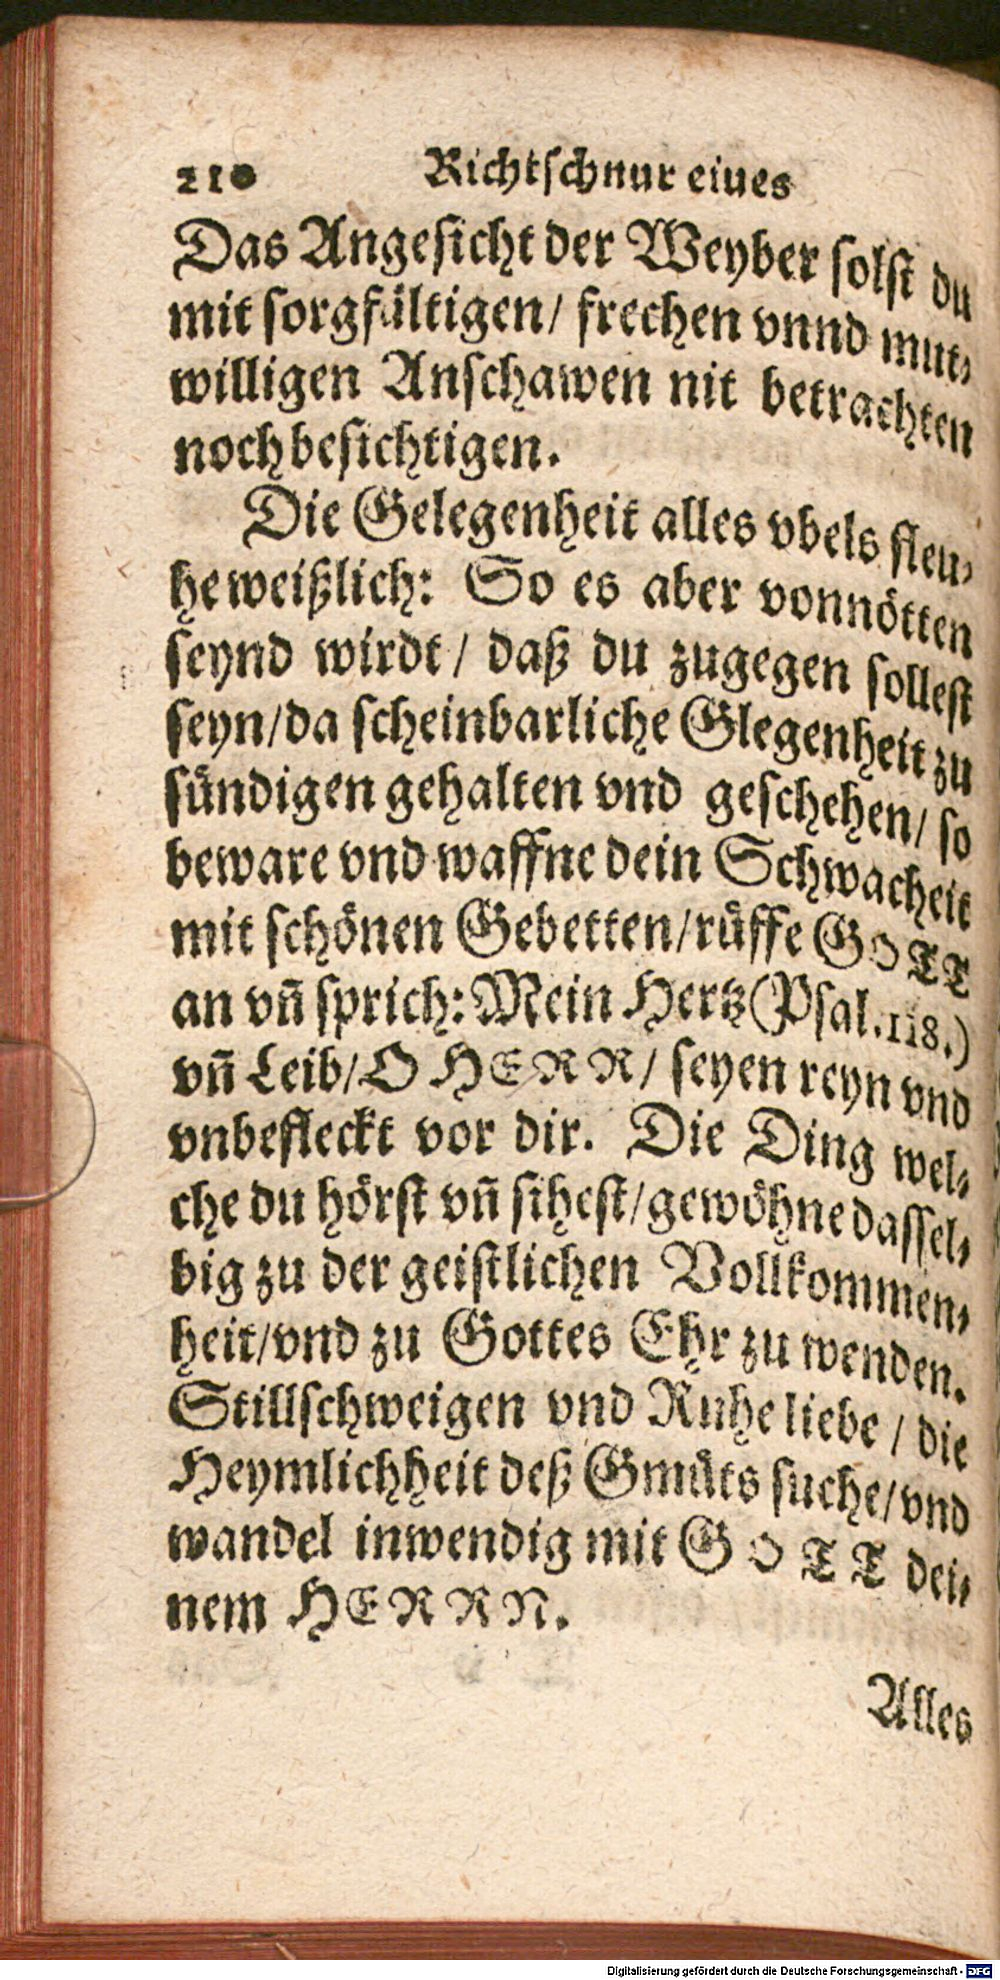 210 Richtſchnur eiues
Das Angeſicht der Weyber ſolſt du
mit ſorgfältigen/ frechen vnnd mut⸗
willigen Anſchawen nit betrachten
noch beſichtigen.
Die Gelegenheit alles vbels fleu⸗
he weißlich: So es aber vonnötten
ſeynd wirdt / daß du zugegen ſolleſt
ſeyn/da ſcheinbarliche Glegenheit zu
ſündigen gehalten vnd geſchehen/ ſo
beware vnd waffne dein Schwacheit
mit ſchönen Gebetten/rüffe GOTT
an vñ ſprich: Mein Hertz (Pſal.118.)
vñ Leib/O HERR/ ſeyen reyn vnd
vnbefleckt vor dir. Die Ding wel⸗
che du hörſt vñ ſiheſt/gewöhne daſſel⸗
big zu der geiſtlichen Vollkommen⸗
heit/vnd zu Gottes Ehr zu wenden.
Stillſchweigen vnd Ruhe liebe / die
Heymlichheit deß Gmüts ſuche/vnd
wandel inwendig mit GOTT dei⸗
nem HERRN.
Alles
Digitalisierung gefördert durch die Deutsche Forschungsgemeinschaft - DFG